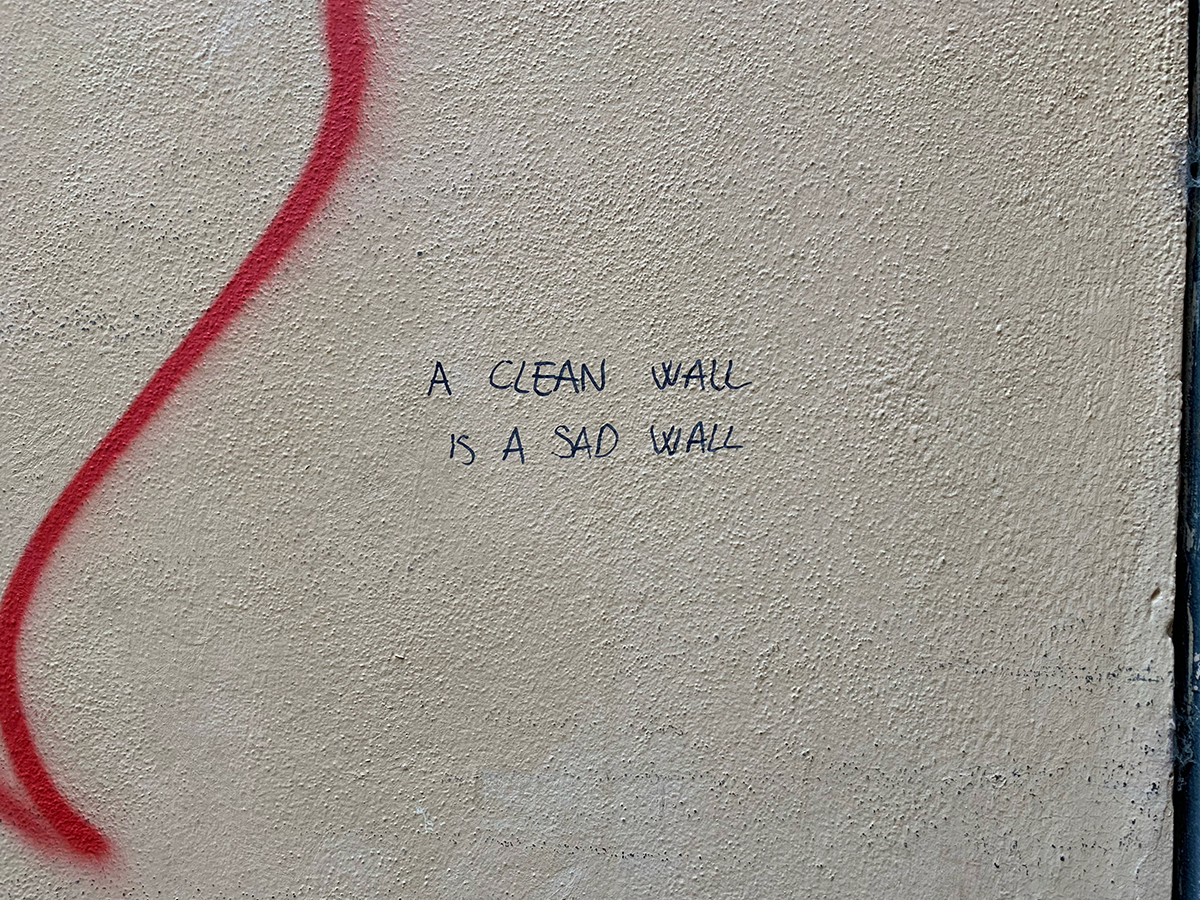 A CLEAN WALL
IS A SAD WALL